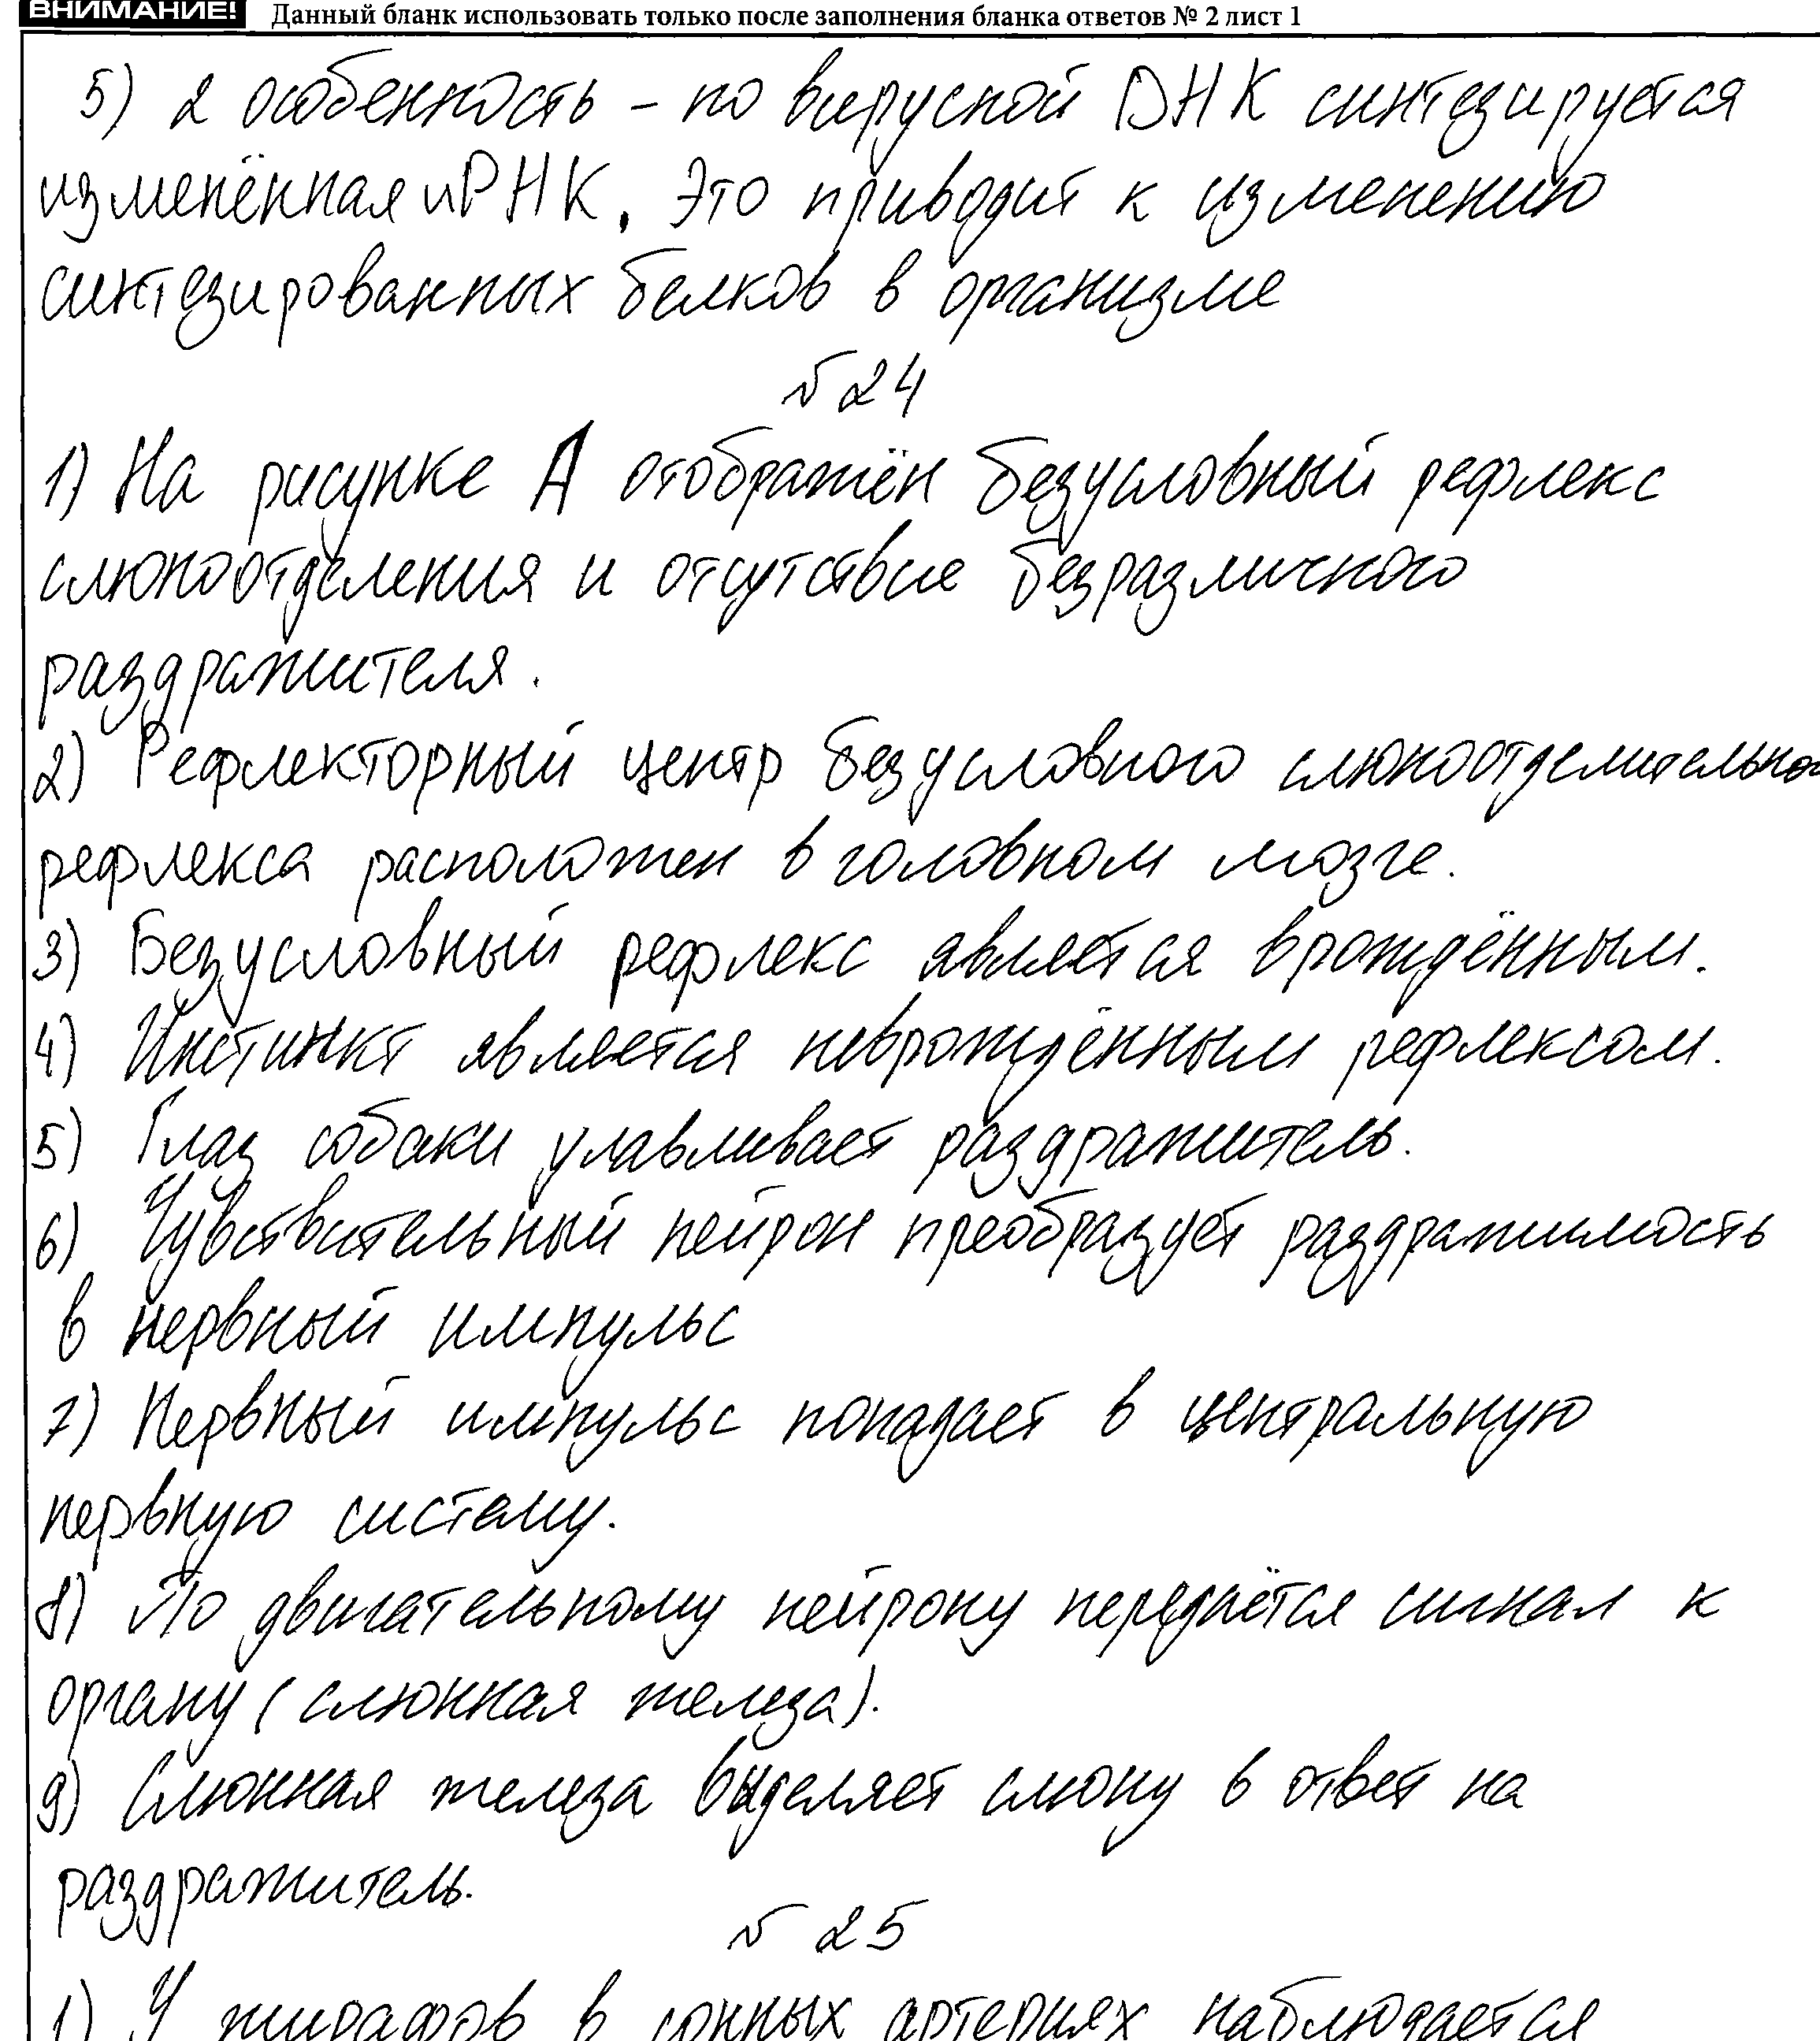 ВНИМАНИЕ! Данный бланк использовать только после заполнения бланка ответов № 2 лист 1
5) 2 особенность – по вирусной ДНК синтезируется
изменённая иРНК. Это приводит к изменению
синтезированных белков в организме
№ 24
1) На рисунке А отображён безусловный рефлекс
слюноотделения и отсутствие безразличного
раздражителя.
2) Рефлекторный центр безусловного слюноотделительного
рефлекса расположен в головном мозге.
3) Безусловный рефлекс является врождённым.
4) Инстинкт является неврождённым рефлексом.
5) Глаз собаки улавливает раздражитель.
6) Чувствительный нейрон преобразует раздражимость
в нервный импульс
7) Нервный импульс попадает в центральную
нервную систему.
8) По двигательному нейрону передаётся сигнал к
органу (слюнная железа).
9) Слюнная железа выделяет слюну в ответ на
раздражитель.
№ 25
1) У жирафов в сонных артериях наблюдается